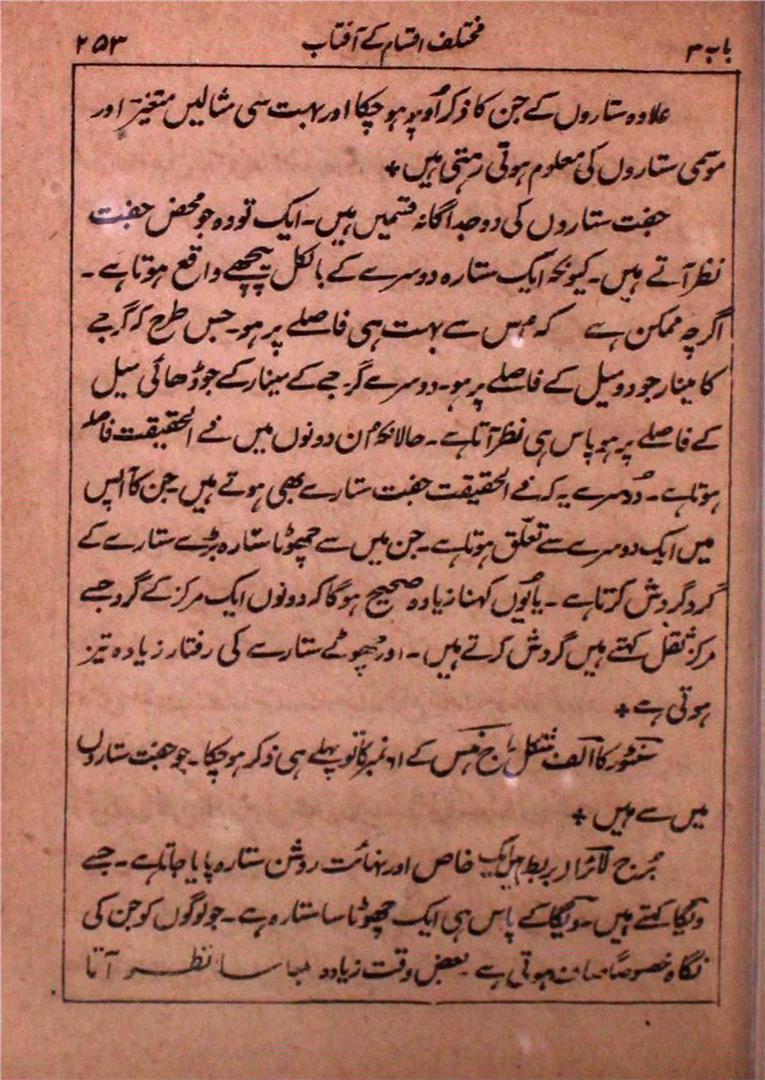 باب ۳ مختلف اقسام کے آفتاب ۲۵۳
علاوہ ستاروں کے جن کا ذکر اُوپر ہو چکا اور بہت سی مثالیں متغیّر اور
موسمی ستاروں کی معلوم ہوتی رہتی ہیں +
جفت ستاروں کی دو جداگانہ قسمیں ہیں۔ ایک تو وہ جو محض جفت
نظر آتے ہیں۔ کیونکہ ایک ستارہ دوسرے کے بالکل پیچھے واقع ہوتا ہے۔
اگرچہ ممکن ہے کہ اس سے بہت ہی فاصلے پر ہو۔ جس طرح کہ گرجے
کا مینار جو دو میل کے فاصلے پر ہو۔ دوسرے گرجے کے مینار کے جو ڈھائی میل
کے فاصلے پر ہو پاس ہی نظر آتا ہے۔ حالانکہ ان دونوں میں فے الحقیقت فاصلہ
ہوتا ہے۔ دُوسرے یہ کہ فے الحقیقت جفت ستارے بھی ہوتے ہیں جن کا آپس
میں ایک دوسرے سے تعلّق ہوتا ہے۔ جن میں سے چھوٹا ستارہ بڑے ستارے کے
گرد گردش کرتا ہے۔ یا یُوں کہنا زیادہ صحیح ہوگا کہ دونوں ایک مرکز کے گرد جسے
مرکز ثقل کہتے ہیں گردش کرتے ہیں۔ اور چھوٹے ستارے کی رفتار زیادہ تیز
ہوتی ہے +
سنٹور کا الف شکل کے ۶۱ نمبر کا تو پہلے ہی ذکر ہو چکا۔ جو جفت ستاروں
میں سے ہیں +
بُرج لائرا پر ایک خاص اور نہائت روشن ستارہ پایا جاتا ہے۔ جسے
ویگا کہتے ہیں۔ ویگا کے پاس ہی ایک چھوٹا سا ستارہ ہے۔ جو لوگوں کو جن کی
نگاہ خصوصاً صاف ہوتی ہے بعض وقت زیادہ لمبا سا نظر آتا